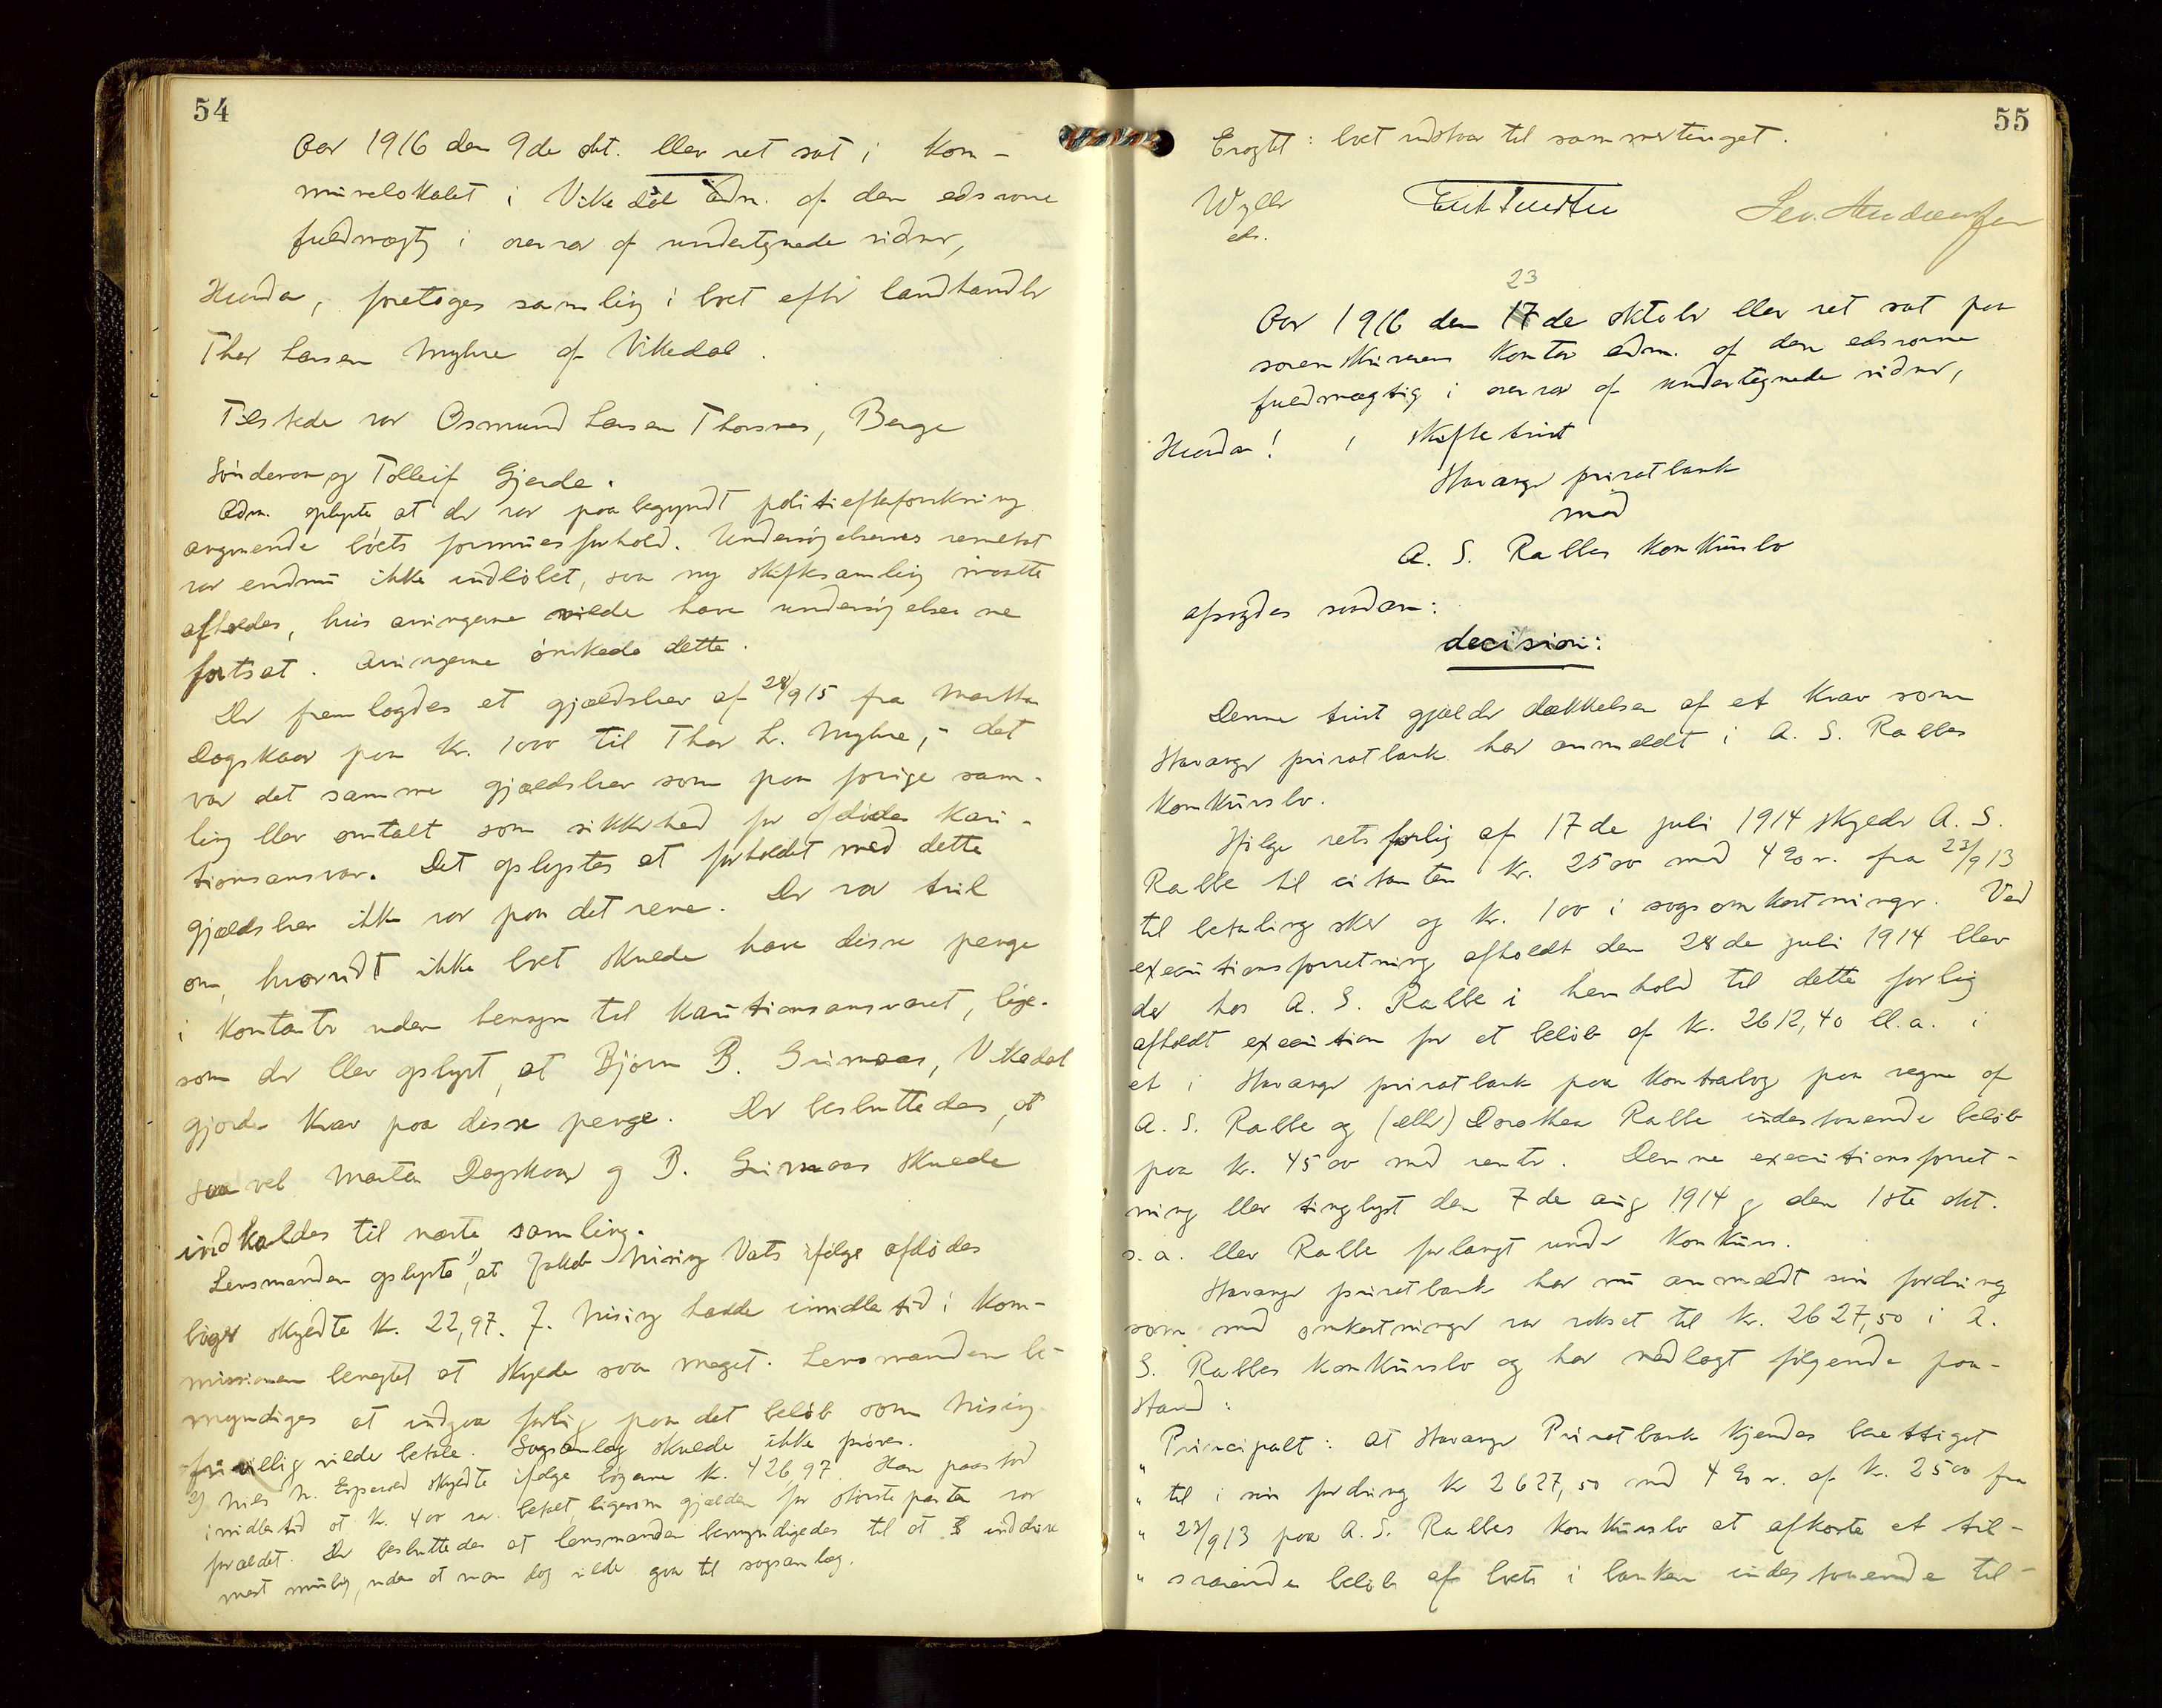 54
Aar 1916 den 9de okt. blev ret sat i Kom-
munelokalet i Vikedal adm. af den edsvorne
fuldmægtig i overvær af undertegnede vidner,
Hvorda, foretoges samling i boet efter landhandler
Thor Larsen Myhre af Vikedal.
Tilstede var Osmund Larsen Thorsnes, Berge
Sönderon og Tolleif Gjerde.
Adm. oplyste at der var paabegyndt politiefterforskning
angaaende böets formuesforhold. Undersögelsernes resultat
var endnu ikke indlöbet, saa ny skiftesamling maatte
afholdes, hvis arvingerne vilde have undersögelserne
fortsat. Arvingerne önskede dette.
Der fremlagdes et gjældsbrev af 28/9 15 fra Martha
Dagskaar paa kr. 1000 til Thor L. Myhre, - det
var det samme gjældsbrev som paa forrige sam-
ling blev omtalt som sikkerhed for afdödes kau-
tionsansvar. Det oplystes at forholdet med dette
gjældsbrev ikke var paa det rene. Der var tvil
om, hvorvidt ikke boet skulde have disse penge
i kontanter uden hensyn til kautionsansvaret, lige-
som der blev oplyst, at Björn B. Grimaas, Vikedal
gjorde krav paa disse penge. Der besluttedes, at
saavel Marta Dagskaar og B. Grimaas skulde
indkaldes til næste samling.
Lensmanden oplyste 1) at Jakob Nising Vats ifölge afdödes
böger skyldte kr. 22,97. J. Nising hadde imidlertid i kom-
missionen benegtet at skylde saa meget. Lensmanden be-
myndiges at indgaa forlig paa det belöb som Nising
frivillig vilde betale. Sögsanlæg skulde ikke pröves.
2) Nils N. Espevold skyldte ifölge bögerne kr. 426,97. Han paastod
imidlertid at kr. 400 var betalt, ligesom gjælden for störste parten var
forældet. Der besluttedes at lensmanden bemyndigedes til at inddrive
mest mulig, uden at man dog vilde gaa til sögsanlæg.
55
Eragtet: boet udstaar til sommertinget.
Wyller
eds.
23
Aar 1916 den 17de oktober blev ret sat paa
sorenskriverens kontor adm. af den edsvorne
fuldmægtig i overvær af undertegnede vidner,
Hvorda! i skiftetvist
Stavanger privatbank
mod
A. S. Rabbes konkursbo
afsagdes saadan:
decision:
Denne tvist gjælder dækkelsen af et krav som
Stavanger privatbank har anmeldt i A. S. Rabbes
konkursbo.
Ifölge retsforlig af 17de juli 1914 skylder A. S.
Rabbe til citanten kr. 2500 med 4% r. fra 23/9 13
til betaling sker og kr. 100 i sagsomkostninger. Ved
executionsforretning afholdt den 28de juli 1914 blev
der hos A. S. Rabbe i henhold til dette forlig
afholdt execution for et belöb af kr. 2612,40 bl.a. i
et i Stavanger privatbank paa kontrabog paa regne af
A. S. Rabbe og (eller) Dorothea Rabbe indestaaende belöb
paa kr. 4500 med renter. Denne executionsforret-
ning blev tinglyst den 7de aug 1914 og den 1ste okt.
s.a. blev Rabbe forlangt under konkurs.
Stavanger privatbank har nu anmeldt sin fordring
som med omkostninger var vokset til kr. 2627,50 i A.
S. Rabbes konkursbo og har nedlagt fölgende paa-
stand:
Principalt: at Stavanger Privatbank kjendes berettiget
" til i sin fordring kr 2627,50 med 4% r. af kr. 2500 fra
" 23/9 13 paa A. S. Rabbes konkursbo at afkorte et til-
" svarende belöb af boets i banken indestaaende til-